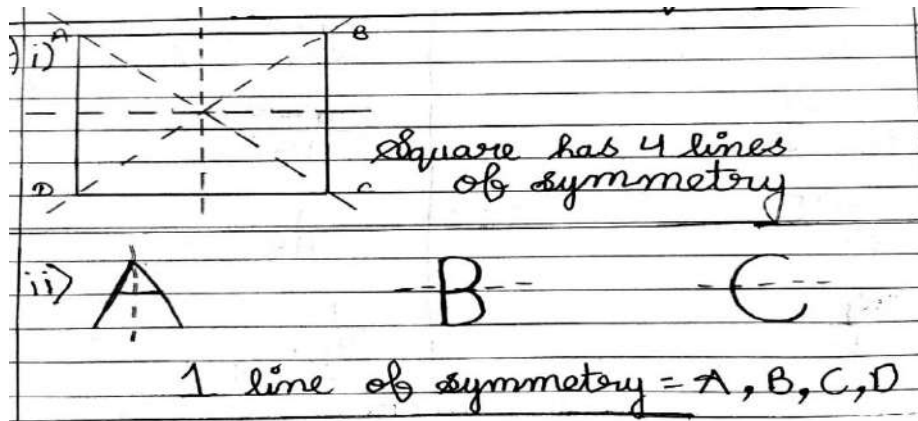 A B
i)
Square has 4 lines
of symmetry
D C
ii) A B C
1 line of symmetry = A, B, C, D